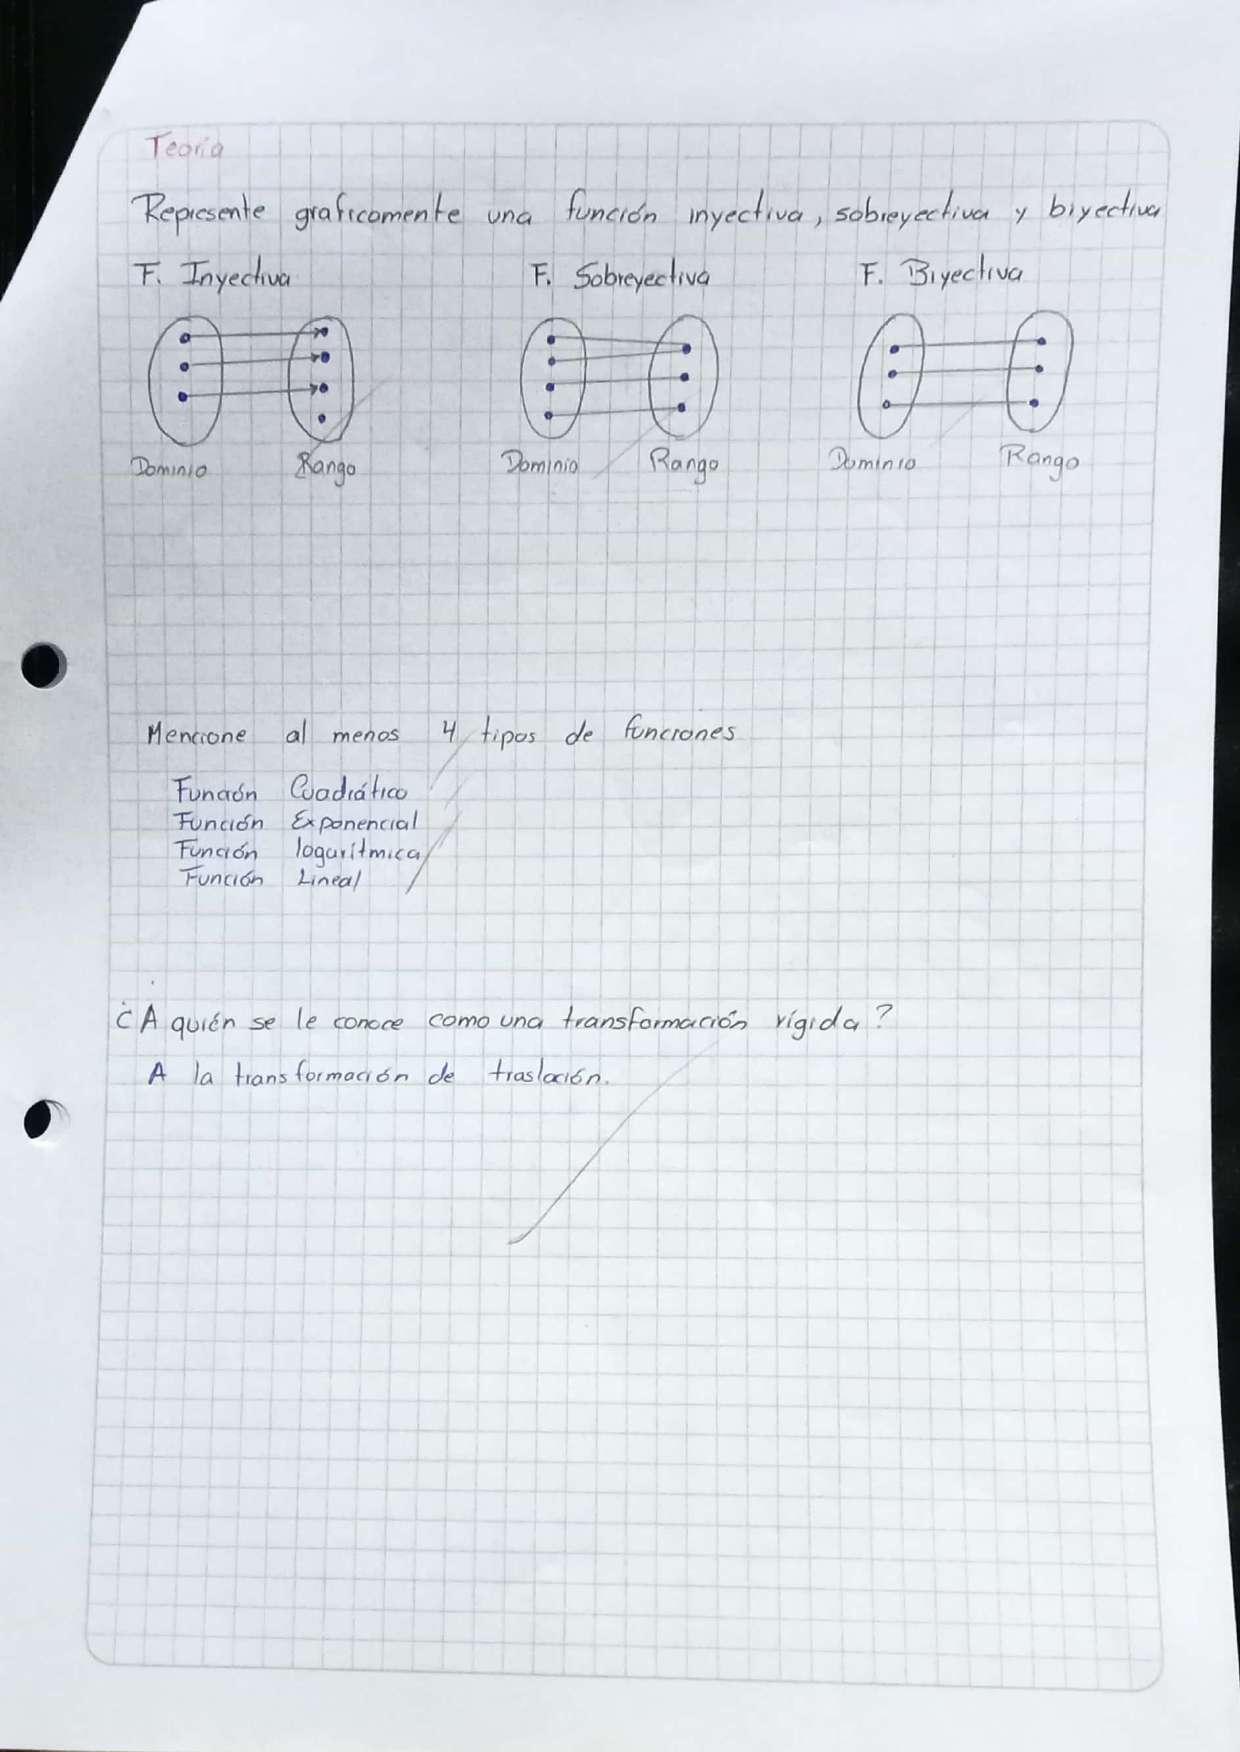 Teoría
Represente graficamente una función inyectiva, sobreyectiva y biyectiva
F. Inyectiva F. Sobreyectiva F. Biyectiva
Dominio Rango Dominio Rango Dominio Rango
Mencione al menos 4 tipos de funciones
Función Cuadrático
Función Exponencial
Función logarítmica
Función Lineal
¿A quién se le conoce como una transformación rígida?
A la transformación de traslación.